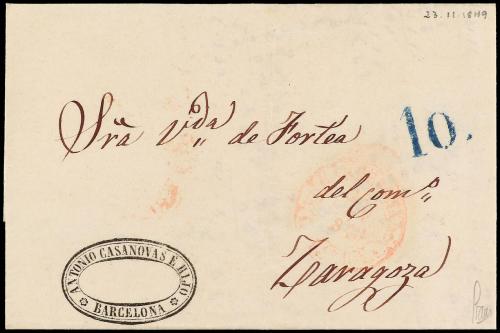 23.11.1849
Sr̃a V.da de Fortéa
10.
del Com.o
Zaragoza
ANTONIO CASANOVAS É HIJO
BARCELONA